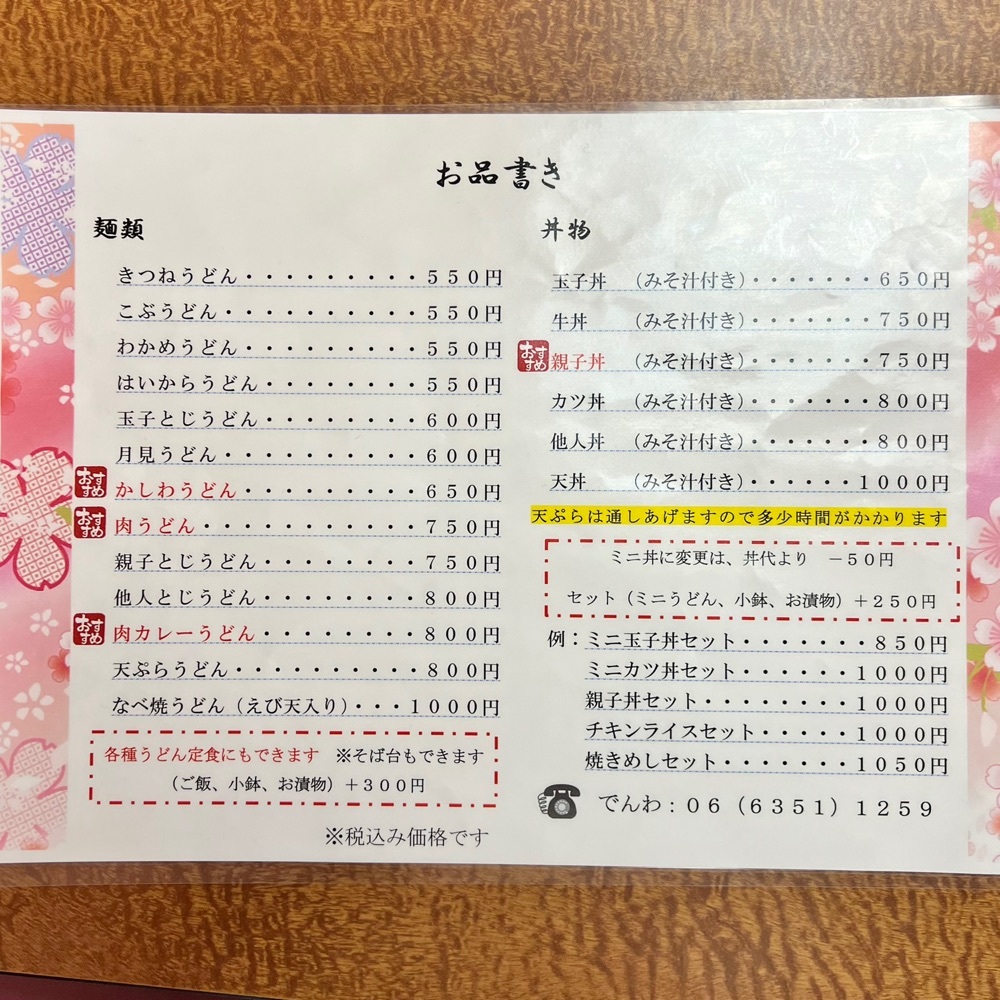 お品書き
麺類
きつねうどん・・・・・・・・・５５０円
こぶうどん・・・・・・・・・・５５０円
わかめうどん・・・・・・・・・５５０円
はいからうどん・・・・・・・・５５０円
玉子とじうどん・・・・・・・・６００円
月見うどん・・・・・・・・・・６００円
おすすめ かしわうどん・・・・・・・・・６５０円
おすすめ 肉うどん・・・・・・・・・・・７５０円
親子とじうどん・・・・・・・・７５０円
他人とじうどん・・・・・・・・８００円
おすすめ 肉カレーうどん・・・・・・・・８００円
天ぷらうどん・・・・・・・・・８００円
なべ焼うどん（えび天入り）・・・１０００円
各種うどん定食にもできます　※そば台もできます
（ご飯、小鉢、お漬物）＋３００円
※税込み価格です
丼物
玉子丼　（みそ汁付き）・・・・・・・６５０円
牛丼　　（みそ汁付き）・・・・・・・７５０円
おすすめ 親子丼　（みそ汁付き）・・・・・・・７５０円
カツ丼　（みそ汁付き）・・・・・・・８００円
他人丼　（みそ汁付き）・・・・・・・８００円
天丼　　（みそ汁付き）・・・・・・１０００円
天ぷらは通しあげますので多少時間がかかります
ミニ丼に変更は、丼代より　－５０円
セット（ミニうどん、小鉢、お漬物）＋２５０円
例：ミニ玉子丼セット・・・・・・・８５０円
ミニカツ丼セット・・・・・・１０００円
親子丼セット・・・・・・・・１０００円
チキンライスセット・・・・・１０００円
焼きめしセット・・・・・・・１０５０円
でんわ：０６（６３５１）１２５９